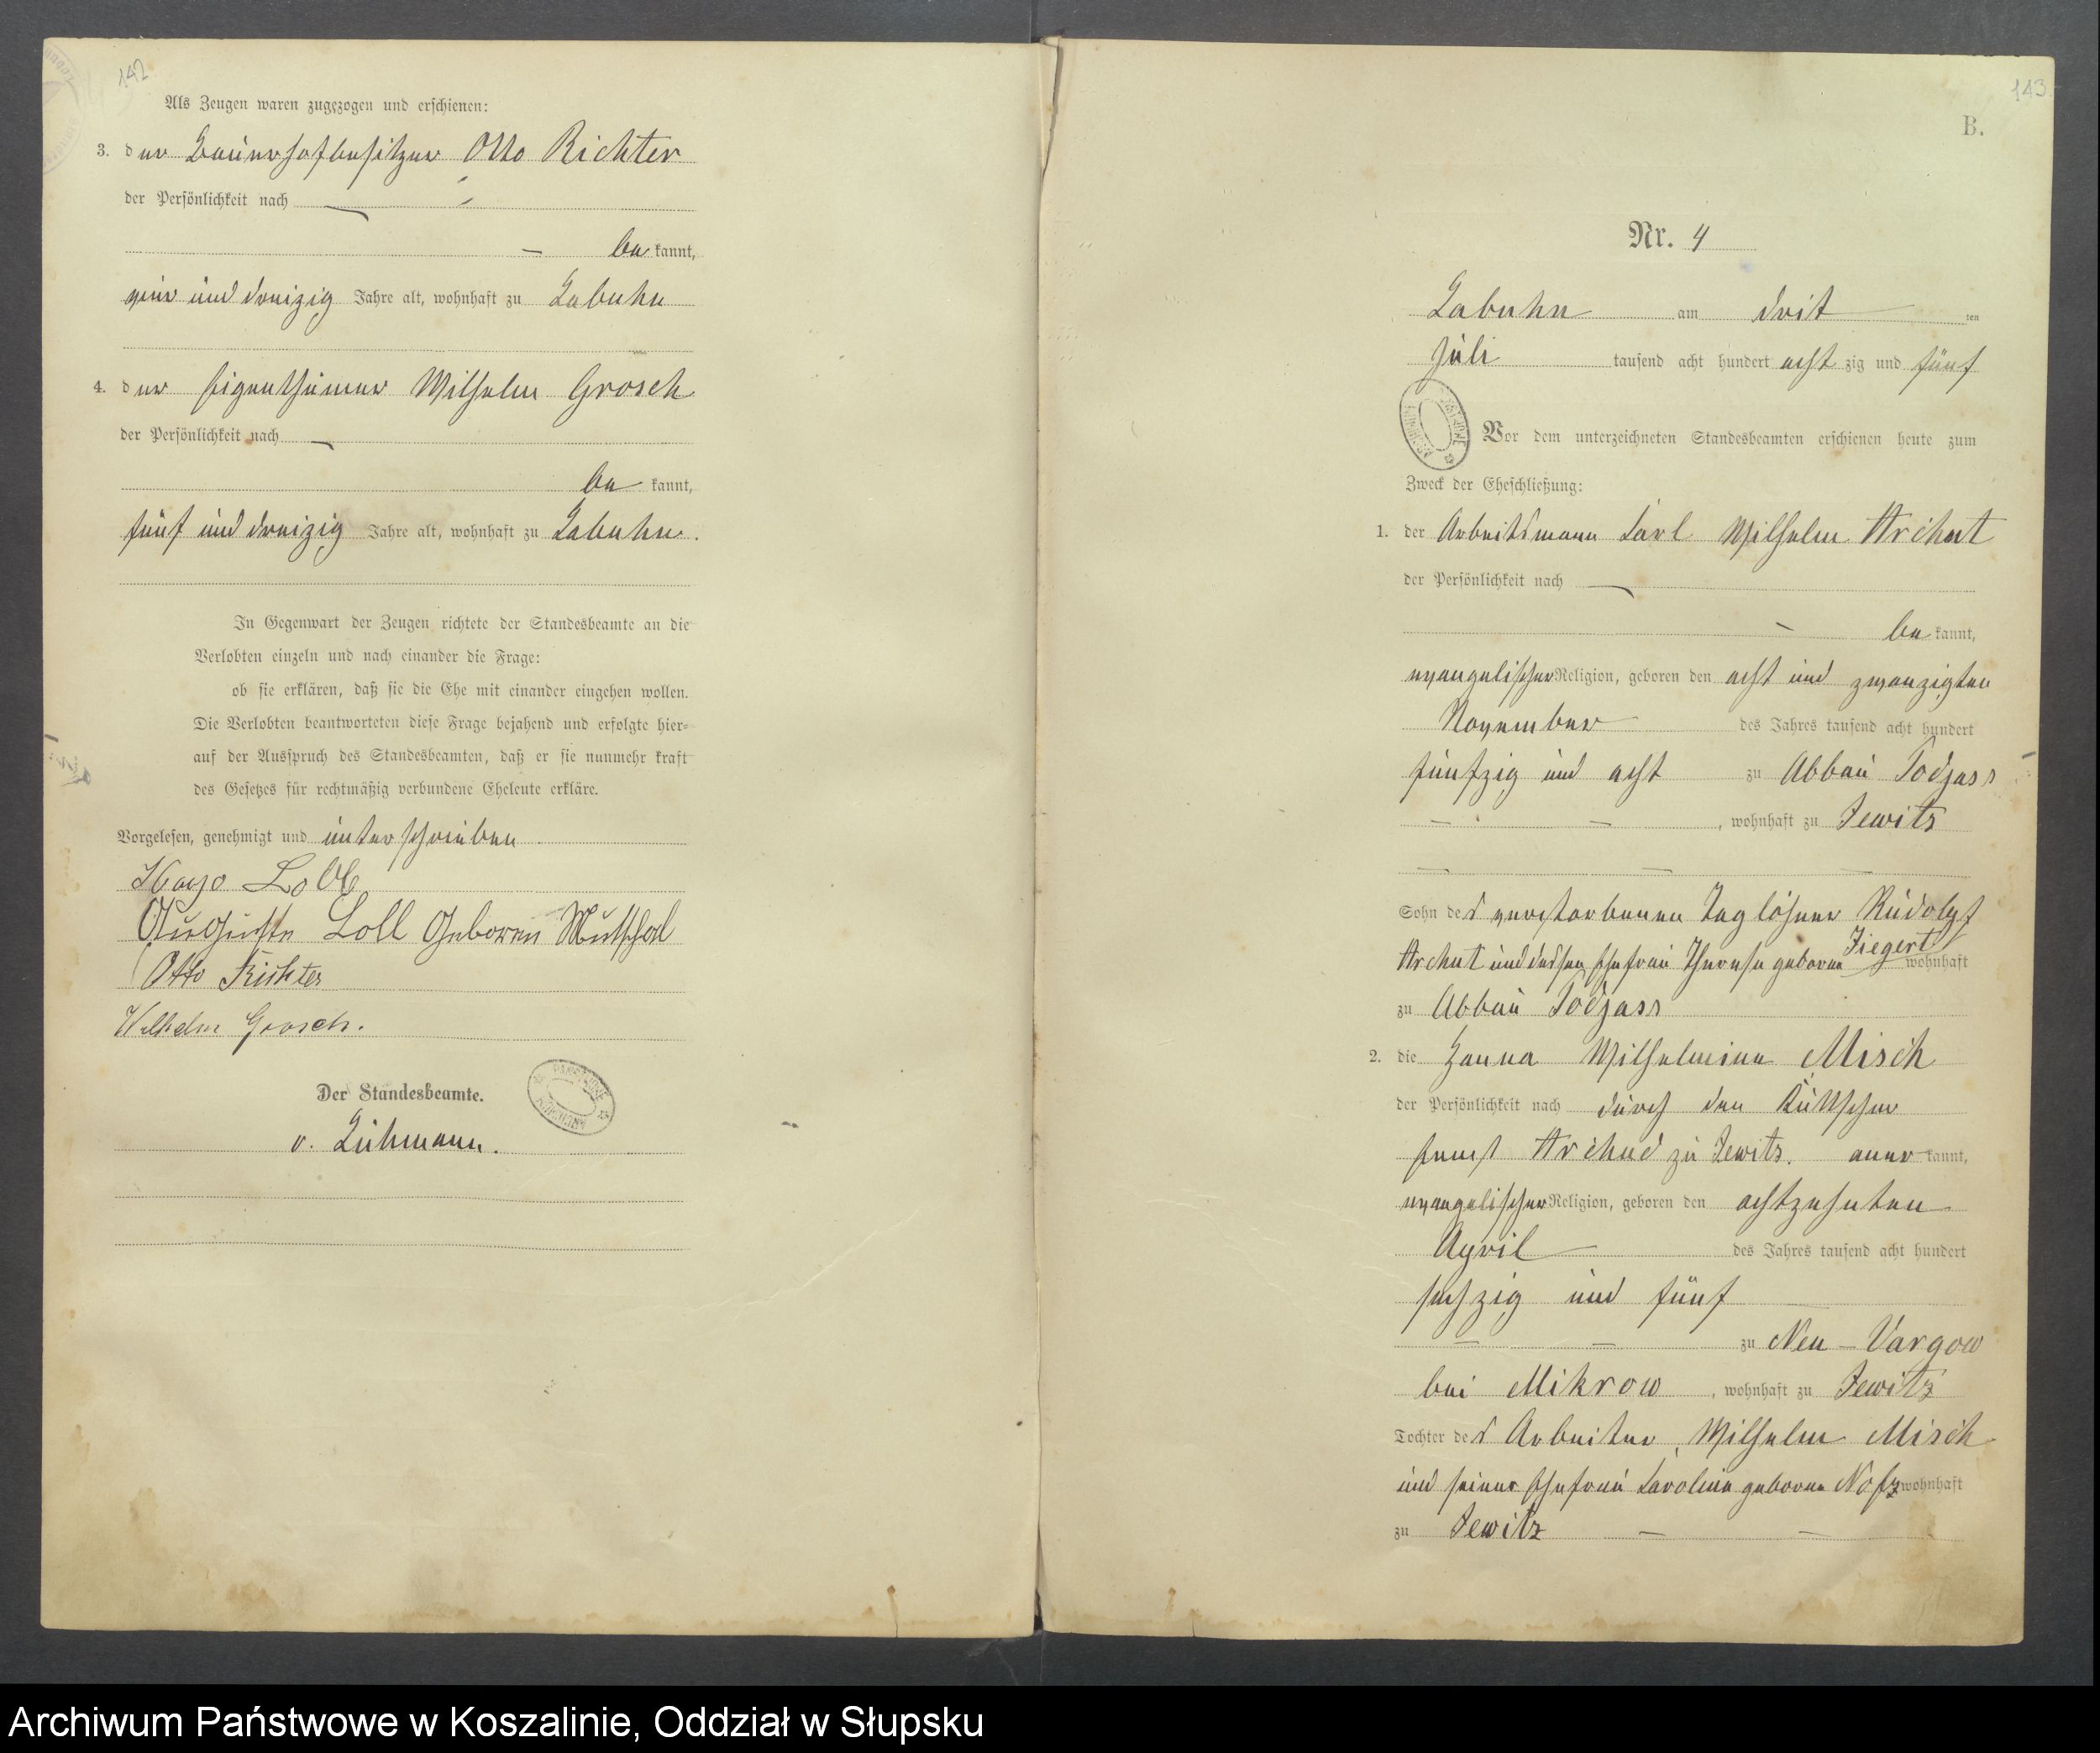 142
Als Zeugen waren zugezogen und erschienen:
3. der Bauerhofbesitzer Otto Richter
der Persönlichkeit nach —
— bekannt,
vier und dreizig Jahre alt, wohnhaft zu Labuhn
4. der Eigenthümer Wilhelm Grosch
der Persönlichkeit nach —
bekannt,
fünf und dreizig Jahre alt, wohnhaft zu Labuhn.
In Gegenwart der Zeugen richtete der Standesbeamte an die
Verlobten einzeln und nach einander die Frage:
ob sie erklären, daß sie die Ehe mit einander eingehen wollen.
Die Verlobten beantworteten diese Frage bejahend und erfolgte hier-
auf der Ausspruch des Standesbeamten, daß er sie nunmehr kraft
des Gesetzes für rechtmäßig verbundene Eheleute erkläre.
Vorgelesen, genehmigt und unterschrieben
Loll
Auguste Loll Geboren
Otto Richter
Wilhelm Grosch.
Der Standesbeamte.
v. Lühmann.
143
B.
Nr. 4
Labuhn am dritten
Juli tausend acht hundert achtzig und fünf
Vor dem unterzeichneten Standesbeamten erschienen heute zum
Zweck der Eheschließung:
1. der Arbeitsmann Carl Wilhelm Archut
der Persönlichkeit nach —
— bekannt,
evangelischer Religion, geboren den acht und zwanzigten
November des Jahres tausend acht hundert
fünfzig und acht zu Abbau Podjass
— — , wohnhaft zu Jewitz
— — —
Sohn des verstorbenen Taglöhner Rudolpf
Archut und dessen Ehefrau Therese geborene Ziegert wohnhaft
zu Abbau Podjass
2. die Hanna Wilhelmine Misch
der Persönlichkeit nach durch den Kuttscher
Ernst Archud zu Jewitz. anerkannt,
evangelischer Religion, geboren den achtzehnten
April — des Jahres tausend acht hundert
sechzig und fünf
— — zu Neu-Vargow
bei Mikrow , wohnhaft zu Jewitz
Tochter des Arbeiter Wilhelm Misch
und seiner Ehefrau Caroline geborene wohnhaft
zu Jewitz — —
Archiwum Państwowe w Koszalinie, Oddział w Słupsku